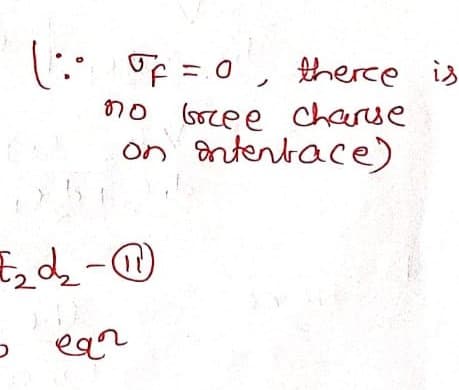 (∵ σ_f = 0, there is
no free charge
on interface)
E₂d₂ - ⑪
eqn